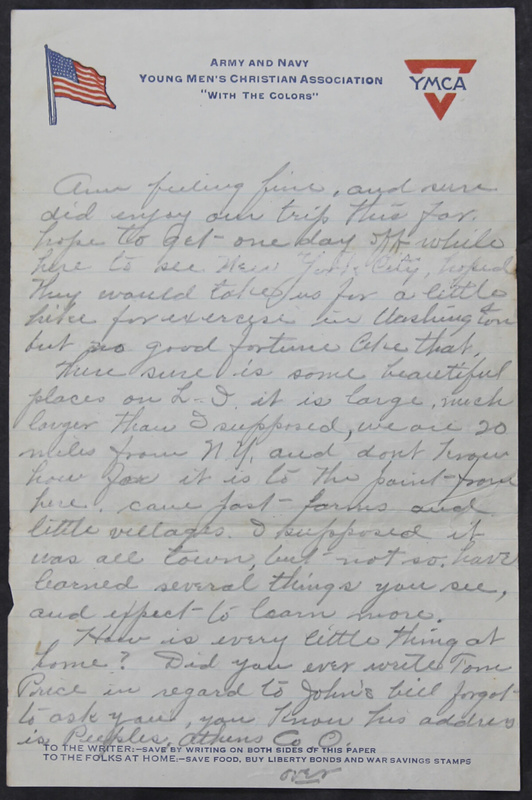 ARMY AND NAVY
YOUNG MEN'S CHRISTIAN ASSOCIATION
"WITH THE COLORS"
YMCA
Am feeling fine, and sure
did enjoy our trip this far.
hope to get one day off while
here to see New York City, hoped
they would take us for a little
hike for exercise in Washington
but no good fortune like that,
There sure is some beautiful
places on L. I. it is large, much
larger than I supposed, we are 20
miles from N.Y. and dont know
how far it is to the point from
here. came past farms and
little villages. I supposed it
was all town, but not so. have
learned several things you see,
and expect to learn more.
How is every little thing at
home? Did you ever write Tom
Price in regard to John's bill forgot
to ask you, you know his address
is Peebles, Athens Co O.
TO THE WRITER:—SAVE BY WRITING ON BOTH SIDES OF THIS PAPER
TO THE FOLKS AT HOME:—SAVE FOOD, BUY LIBERTY BONDS AND WAR SAVINGS STAMPS
over